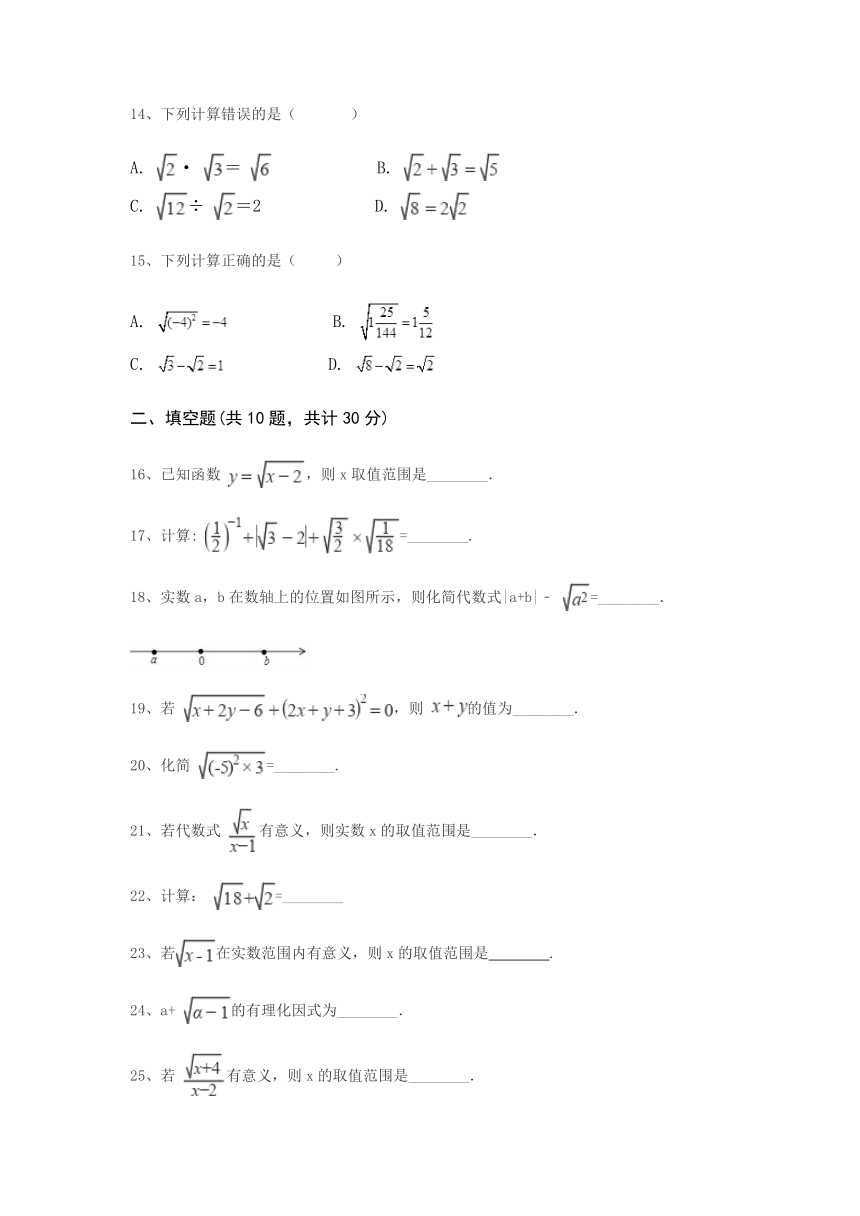 14、下列计算错误的是（ ）
A. √2 · √3＝ √6 B. √2＋√3＝√5
C. √12÷ √2＝2 D. √8＝2√2
15、下列计算正确的是（ ）
A. √(−4)²＝−4 B. √1 25/144＝1 5/12
C. √3−√2＝1 D. √8−√2＝√2
二、填空题(共10题，共计30分)
16、已知函数 y＝√x−2，则x取值范围是________．
17、计算: (1/2)⁻¹+|√3−2|+√3/2 ×√1/18=________.
18、实数a，b在数轴上的位置如图所示，则化简代数式|a+b|﹣ √a²=________．
a 0 b
19、若 √x+2y−6+(2x+y+3)²=0，则 x+y的值为________．
20、化简 √(-5)²×3=________.
21、若代数式 √x/x−1 有意义，则实数x的取值范围是________．
22、计算： √18+√2=________
23、若√x-1在实数范围内有意义，则x的取值范围是________.
24、a+ √a−1的有理化因式为________．
25、若 √x+4/x−2 有意义，则x的取值范围是________．